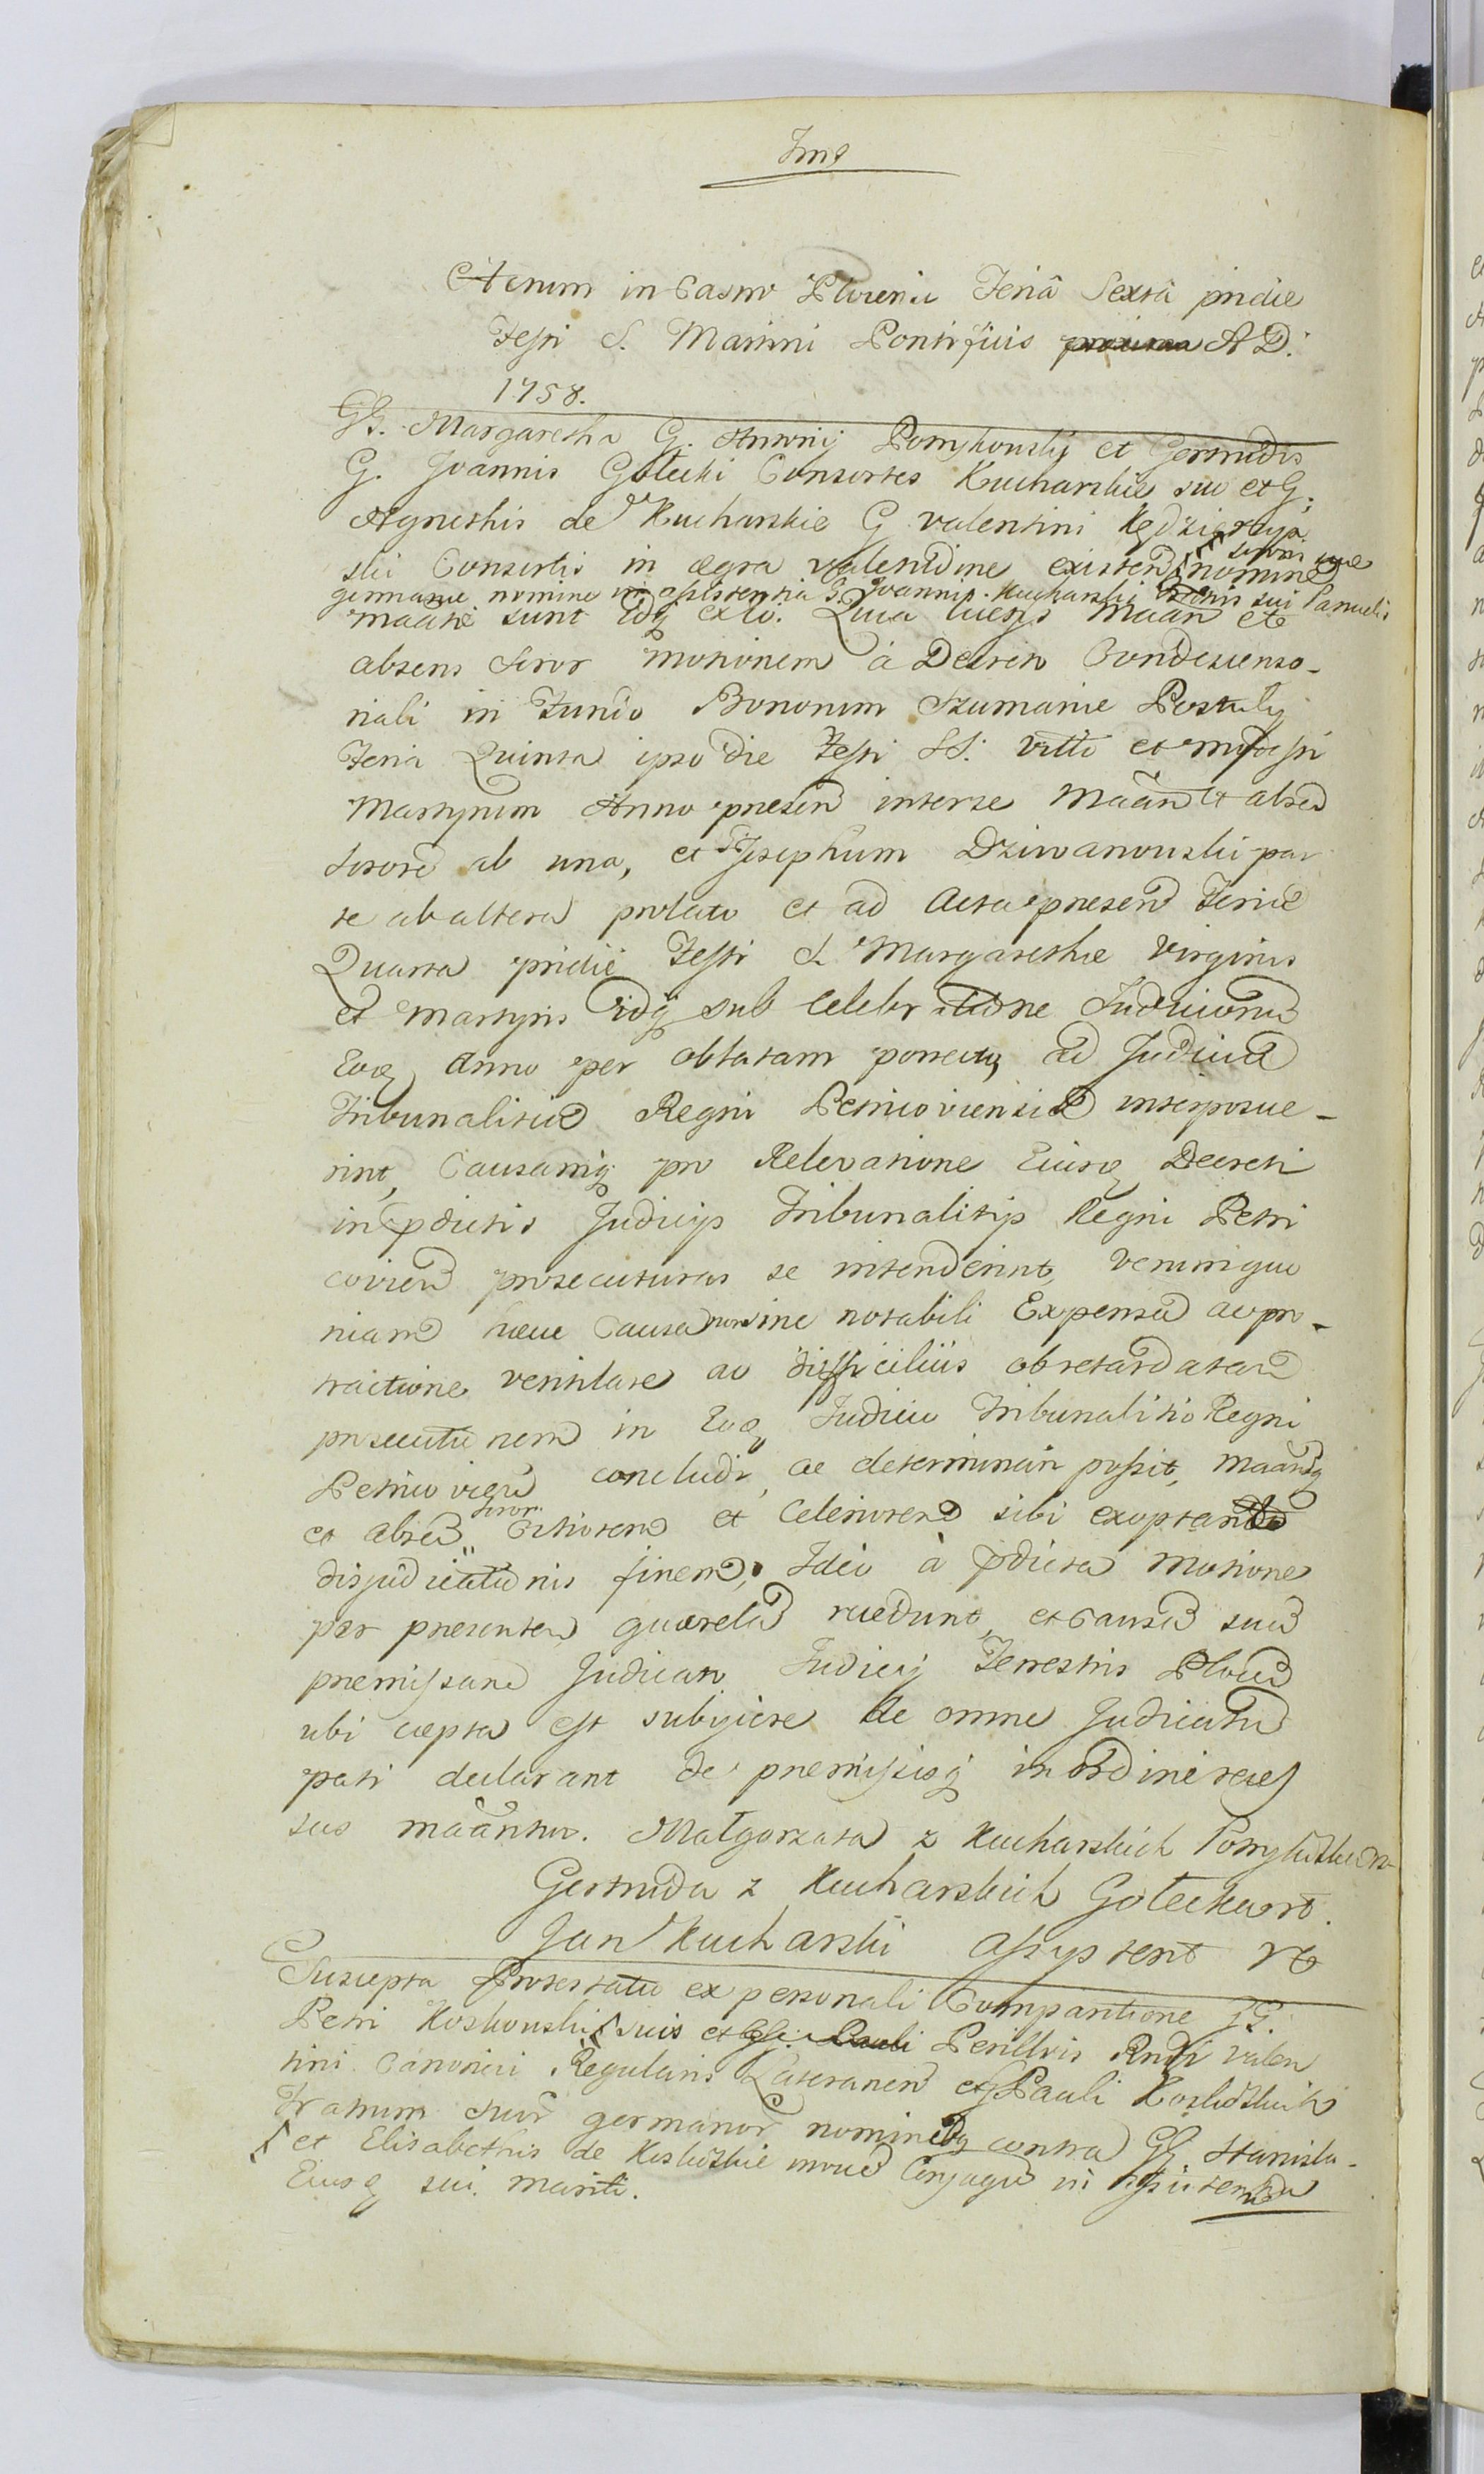 Actum in Castro Plocensi Feriâ Sextâ pridie
Festi S. Martini Pontificis A D.
1758.
GG. Margaretha G. Antonij Pomykowskij et Gertrudis
G. Joannis Gołecki Consortes Kucharskie suo et G.
Agnethis de Kucharskie G Valentini Kędzierzya
ski Consortis in aegra valetudine existen nomine
sororis suae
germanae nomine in assistentia G. Joannis Kucharski sui Patruelis
maãte sunt Idq exto. Quia licet ijs Maãn et
absens Soror motionem à Decreto Condescenso-
riali in Fundo Bonorum Szumanie Pustuly
Feria Quinta ipso die Festi SS. Viti et Modesti
Martyrum Anno presen interse Maãn et absen
Sorore ab una, et G Josephum Dziwanowski par
te ab altera prolato et ad Acta presen Feriae
Quarta pridie Festi S. Margarethae Virginis
et Martyris idq sub Celebratione Judiciorum
Eoq Anno per oblatam porrecto, ad Judicia
Tribunalitia Regni Petricoviensia interposue-
rint, Causamq pro Relevatione Eiusq Decreti
in pdictis Judicijs Tribunalitijs Regni Petri
covien prosecuturas se intenderint, Verum quo
niam haec Causa non sine notabili Expensa ac pro-
tractione ventilare ac difficiliùs obretardatam
prosecutionem in Eoq Judicio Tribunalitio Regni
Petricovien concludi, ac determinari possit, maãnq
et absen soror. Citiorem et Celeriorem sibi exoptan
disjudicationis finem, Ideo à pdicta motione
per presentem quaerelam recedunt, et Causam suam
premissam Judicatu Judicij Terrestris Plocen
ubi caepta est subijcere ac omne Judicatum
pati declarant de premissisq in ordine reces
sus maãntur. Małgorzata z Kucharskich Pomykowska
Gertruda z Kucharskich Gołecka
Jan Kucharski assystent
Suscepta Protestatio ex personali Comparitione G.
Petri Koskowski suis et Perillris Rndi Valen
tini Canonici Regularis Lateranen et G Pauli Koskowskich
Fratrum suor germanor nominebq contra GG. Stanisla-
et Elisabethis de Koskowskie Conjugum in assistentia
Eiusq sui mariti.